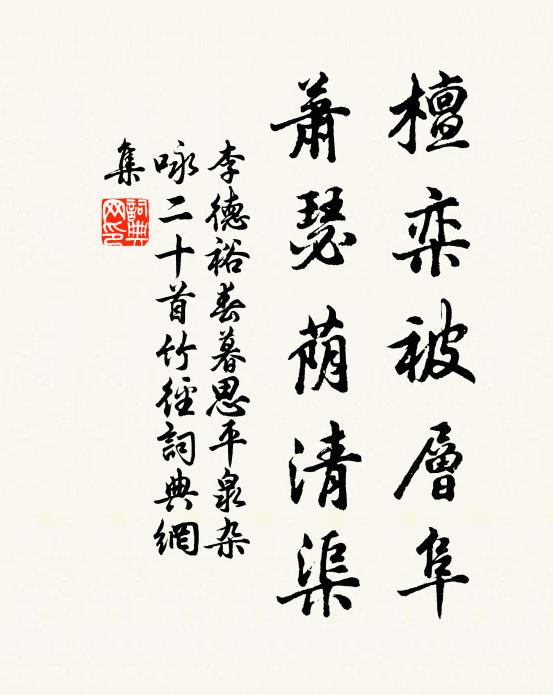 檀栾被層阜
萧瑟荫清渠
李德裕春暮思平泉杂
咏二十首竹徑詞典網
集
詞典
网印